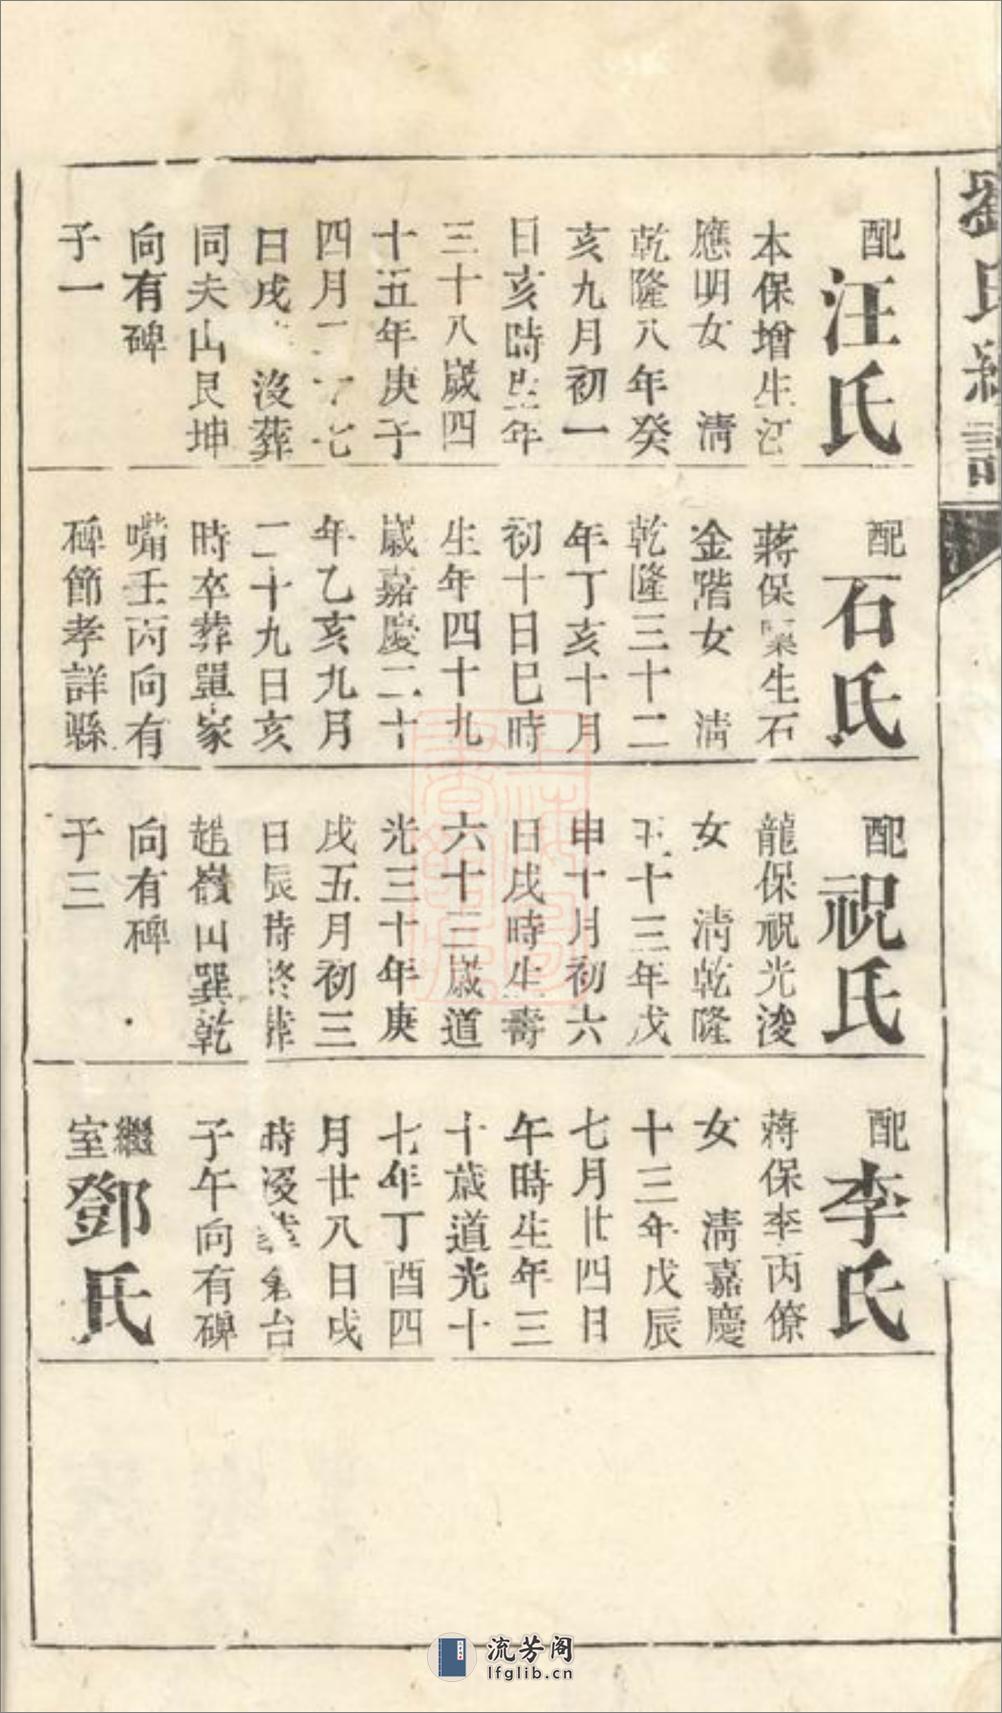 劉氏
配
汪氏
本保增生汪
應明女　清
乾隆八年癸
亥九月初一
日亥時生年
三十八歲四
十五年庚子
四月二十七
日戌　沒葬
同夫山艮坤
向有碑
子一
配
石氏
蔣保　生石
金階女　清
乾隆三十二
年丁亥十月
初十日巳時
生年四十九
歲嘉慶二十
年乙亥九月
二十九日亥
時卒葬單家
嘴壬丙向有
碑節孝詳縣
配
祝氏
龍保祝光浚
女　清乾隆
五十三年戊
申十月初六
日戌時生壽
六十三歲道
光三十年庚
戌五月初三
日辰時終葬
趙嶺山巽乾
向有碑
子三
配
李氏
蔣保李丙僚
女　清嘉慶
十三年戊辰
七月廿四日
午時生年三
十歲道光十
七年丁酉四
月廿八日戌
時沒葬　台
子午向有碑
繼室
鄧氏
流芳阁
lfglib.cn